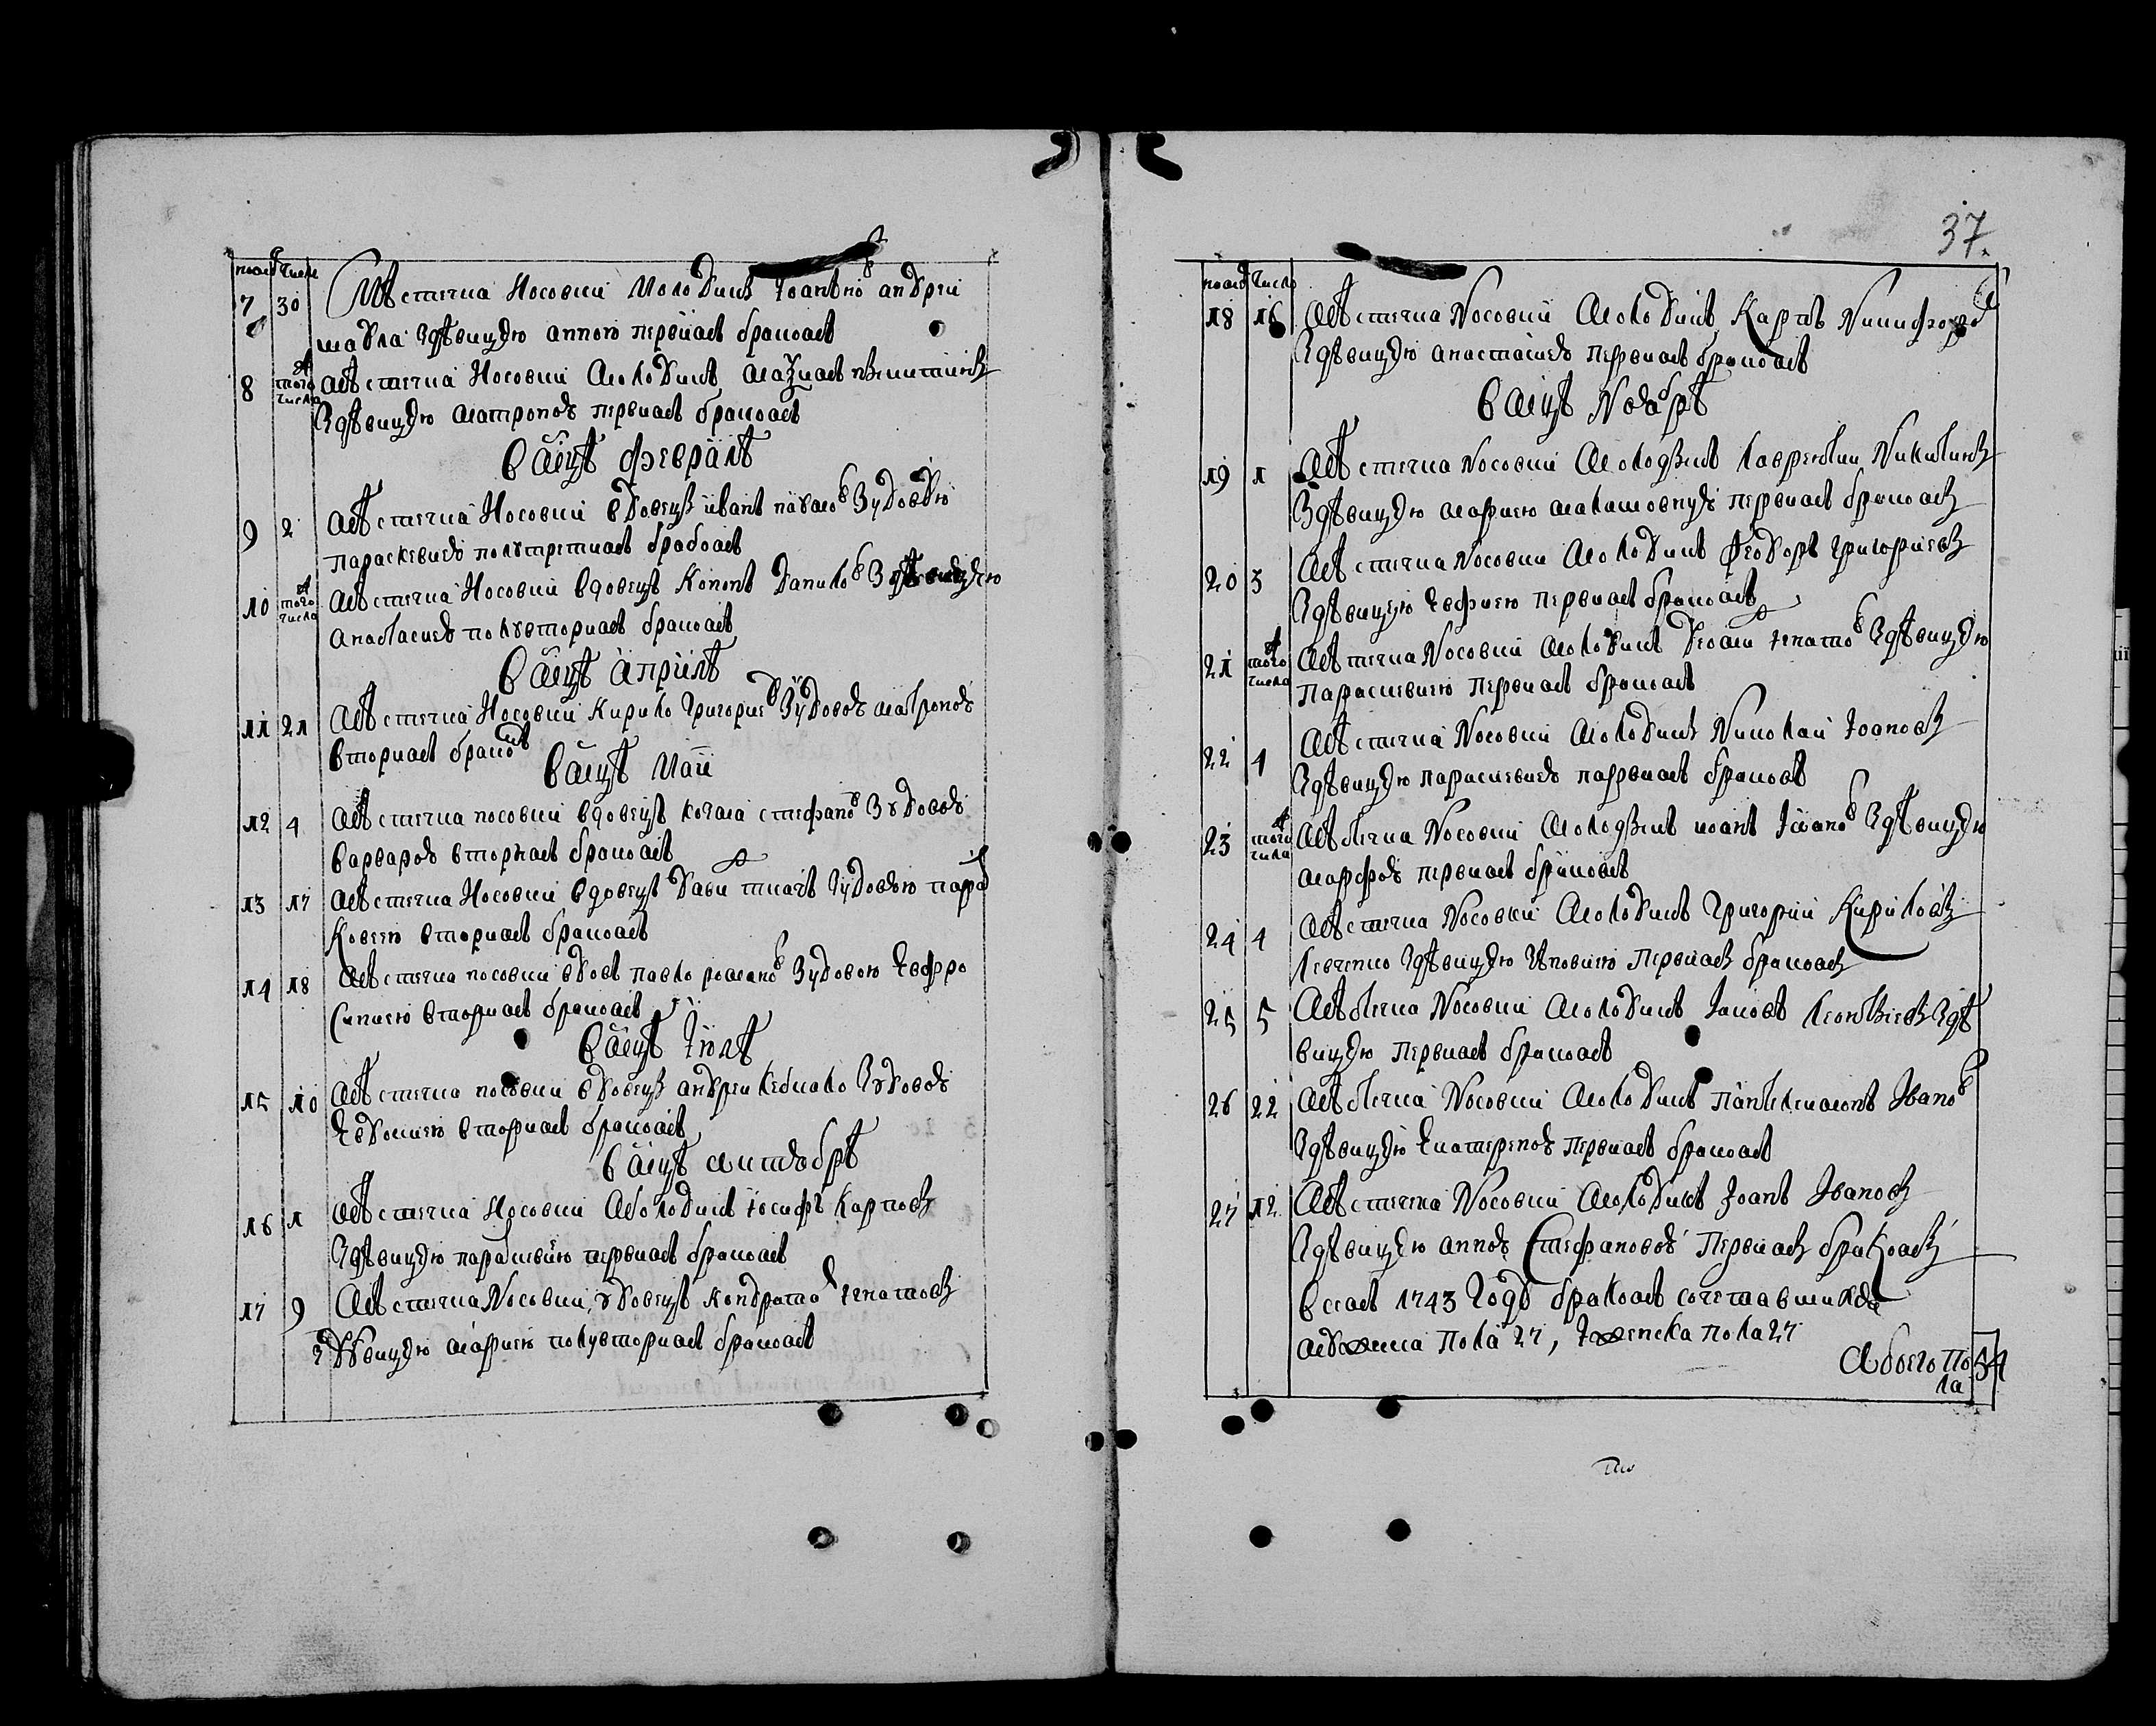 номѣ числ
7 30 Мѣстечка Носовки молодикъ Іоанъ андреи
шабла здѣвицею анною первимъ бракомъ
8 того числа Мѣстечка Носовки молодикъ
Здѣвицею матроною первимъ бракомъ
В мцѣ февралѣ
9 2 Мѣстечка Носовки вдовецъ иванъ павло зудовою
параскевиею полутретимъ бракомъ
10 того числа Мѣстечка Носовки вдовецъ Кононъ Данило Здѣвицею
анастасиею полувторимъ бракомъ
В мцѣ априлѣ
11 21 Мѣстечка Носовки Кирило григорие Зудовою матроною
вторимъ бракомъ
В мцѣ маи
12 4 Мѣстечка носовки вдовецъ стефано Зудовою
варварою вторимъ бракомъ
13 17 Мѣстечка Носовки вдовецъ ткачъ Зудовою пара
Ковею вторимъ бракомъ
14 18 Мѣстечка носовки вдовъ павло романо Зудовою Еефро
синиею вторимъ бракомъ
В мцѣ Іюлѣ
15 10 Мѣстечка носовки вдовецъ андреи Зудовою
Евдокиею вторимъ бракомъ
В мцѣ октоворѣ
16 1 Мѣстечка Носовки Молодикъ Іосифъ Карповъ
Здѣвицею параскевиею первимъ бракомъ
17 9 Мѣстечка Носовки удовецъ Кондратъ Гнатовъ
Здѣвицею мариею полувторимъ бракомъ
37.
номѣ число
18 16 Мѣстечка Носовки Молодикъ Карпъ Никифоро
Здѣвицею анастасиею первимъ бракомъ
В мцѣ Ноябрѣ
19 1 Мѣстечка Носовки Молодзикъ Лаврентии Никитинъ
Здѣвицею мариею первимъ бракомъ
20 3 Мѣстечка Носовки Молодикъ Феодоръ григориевъ
Здѣвицею Евфиею первимъ бракомъ
21 того числа Мѣстечка Носовки Молодикъ гнато Здѣвицею
параскевиею первимъ бракомъ
22 4 Мѣстечка Носовки Молодикъ Николаи Іоановъ
Здѣвицею параскевиею первимъ бракомъ
23 того числа Мѣстечка Носовки Молодзикъ иоанъ Іоано Здѣвицею
марфою первимъ бракомъ
24 4 Мѣстечка Носовки Молодикъ Григории Кириловъ
Левченко Здѣвицею первимъ бракомъ
25 5 Мѣстечка Носовки Молодикъ Іаковъ Леонтиевъ Здѣ
вицею первимъ бракомъ
26 22 Мѣстечка Носовки Молодикъ Пантелимонъ Ивано
Здѣвицею Екатериною первимъ бракомъ
27 12 Мѣстечка Носовки Молодикъ Іоанъ Ивановъ
Здѣвицею анною Стефановою первимъ бракомъ
Всемъ 1743 году бракомъ сочетавшихся
мужеска пола 27, Женска пола 27
Обоего по
ла 54